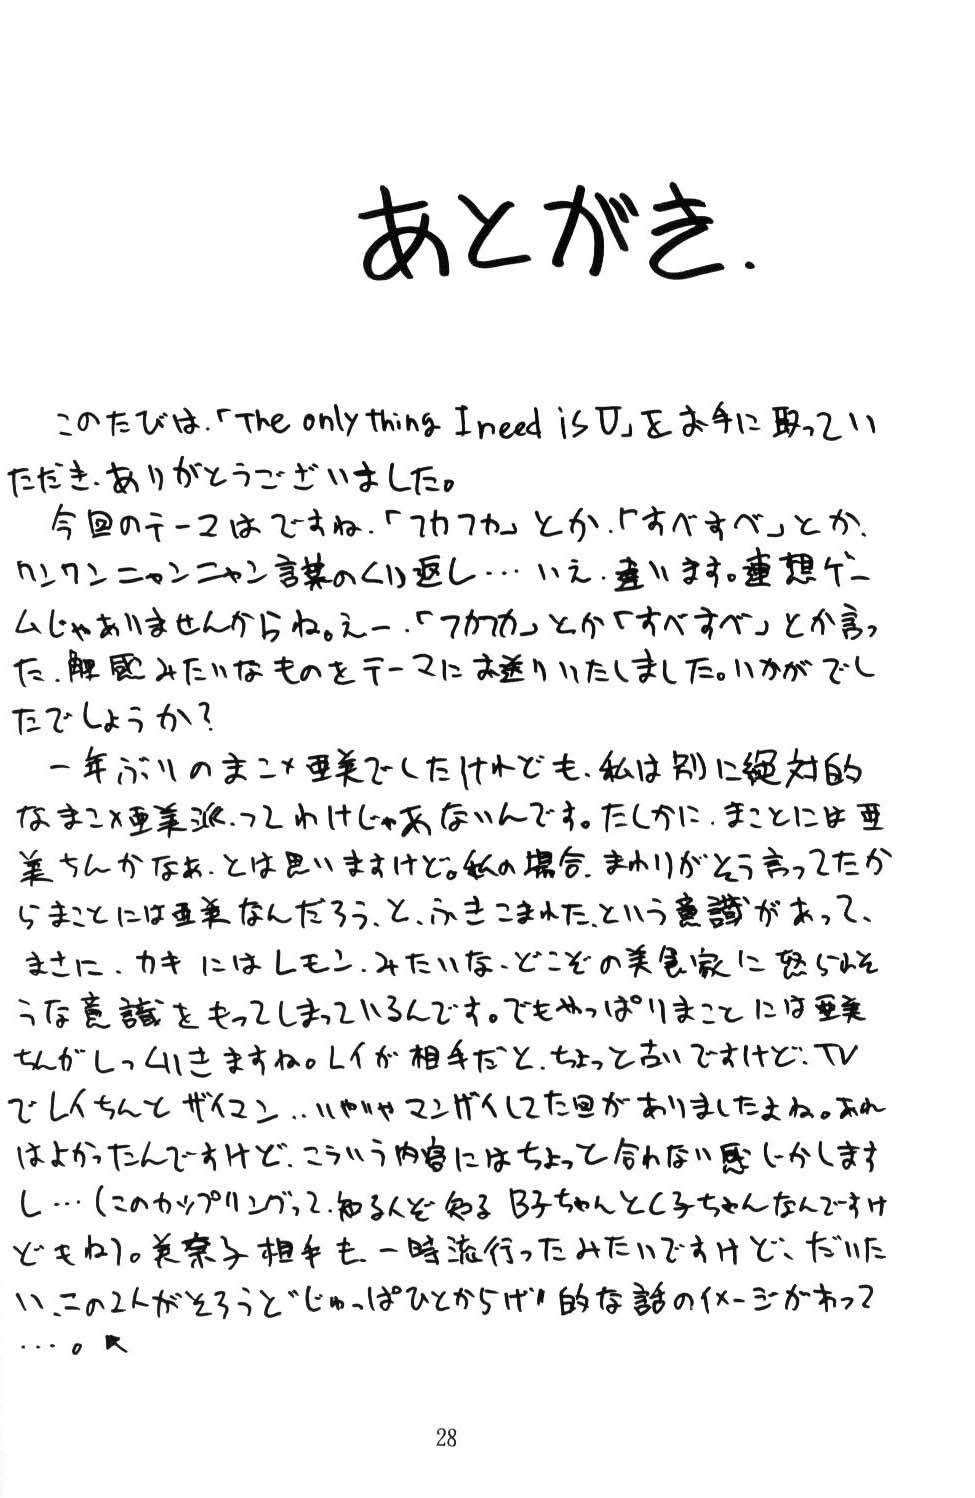 あとがき.
このたびは.「The only thing I need is U」をお手に取ってい
ただき、ありがとうございました。
今回のテーマはですね.「フカフカ」とか.「すべすべ」とか、
ワンワンニャンニャン言葉のくり返し…いえ、違います。連想ゲー
ムじゃありませんからね。えー、「フカフカ」とか「すべすべ」とか言っ
た、触感みたいなものをテーマにお送りいたしました。いかがでし
たでしょうか?
一年ぶりのまこ×亜美でしたけれども、私は別に絶対的
なまこ×亜美派、ってわけじゃあないんです。たしかに、まことには亜
美ちんかなぁ、とは思いますけど。私の場合、まわりがそう言ってたか
らまことには亜美なんだろう、と、ふきこまれた、という意識があって、
まさに、カキにはレモン、みたいな、どこぞの美食家に怒られそ
うな意識をもってしまっているんです。でもやっぱりまことには亜美
ちんがしっくりきますね。レイが相手だと、ちょっと古いですけど、TV
でレイちんとザイマン..いやいやマンザイしてた回がありましたよね。あれ
はよかったんですけど、こういう内容にはちょっと合わない感じかします
し…(このカップリングって、知る人ぞ知るB子ちゃんとC子ちゃんなんですけ
どもね)。美奈子相手も、一時流行ったみたいですけど、だいた
い、この2人がそろうと"じゅっぱひとからげ"的な話のイメージがわって
…。
28